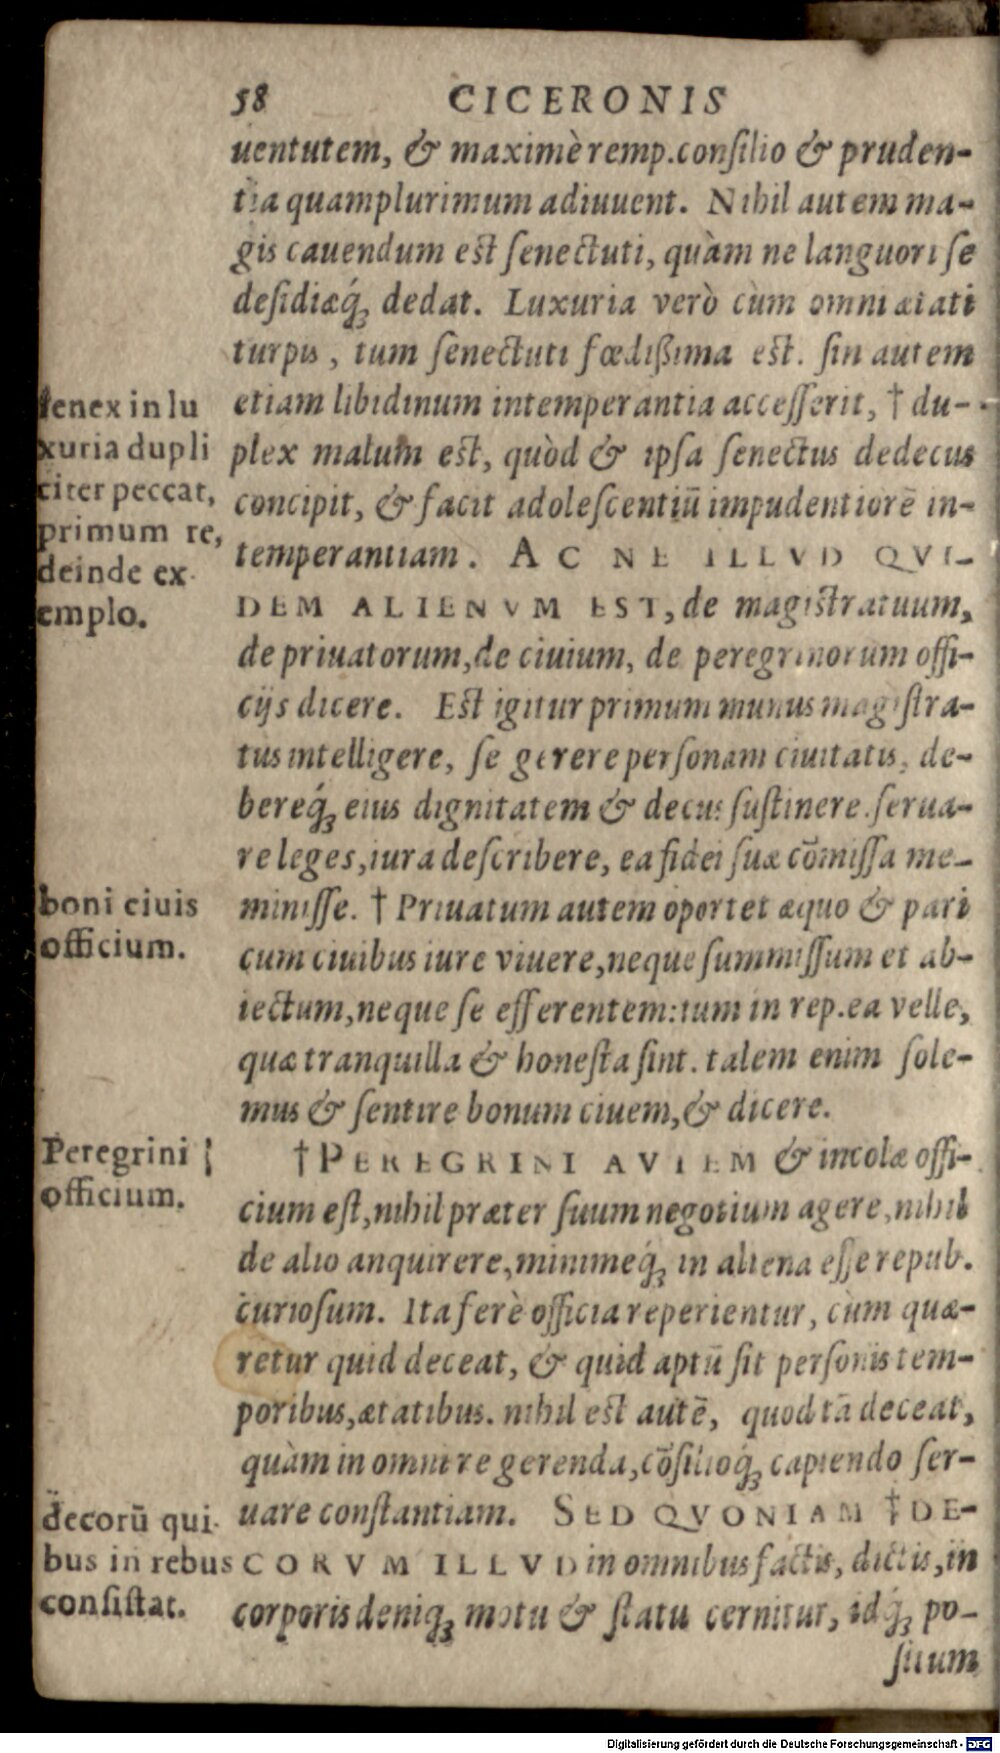 58 CICERONIS
uentutem, & maximè remp.conſilio & pruden-
tia quamplurimum adiuuent. Nihil autem ma-
gis cauendum est ſenectuti, quàm ne languori ſe
deſidiæq́ꝫ dedat. Luxuria verò cùm omni ætati
turpis, tum ſenectuti fœdiſsima est. ſin autem
etiam libidinum intemperantia acceſſerit, † du-
plex malum est, quòd & ipſa ſenectus dedecus
concipit, & facit adoleſcentiū impudentiorē in-
temperantiam. AC NE ILLVD QVI-
DEM ALIENVM EST, de magistratuum,
de priuatorum, de ciuium, de peregrinorum offi-
cijs dicere. Est igitur primum munus magiſtra-
tus intelligere, ſe gerere perſonam ciuitatis, de-
bereq́ꝫ eius dignitatem & decus ſuſtinere. ſerua-
re leges, iura deſcribere, ea fidei ſuæ cōmiſſa me-
miniſſe. † Priuatum autem oportet æquo & pari
cum ciuibus iure viuere, neque ſummiſſum et ab-
iectum, neque ſe efferentem: tum in rep. ea velle,
quæ tranquilla & honeſta ſint. talem enim ſole-
mus & ſentire bonum ciuem, & dicere.
†PEREGRINI AVTEM & incolæ offi-
cium eſt, nihil præter ſuum negotium agere, nihil
de alio anquirere, minimeq́ꝫ in aliena eſſe repub.
curioſum. Ita ferè officia reperientur, cùm quæ-
retur quid deceat, & quid aptū ſit perſonis tem-
poribus, ætatibus. nihil est autē, quod tā deceat,
quàm in omni re gerenda, cōſilioq́ꝫ capiendo ſer-
uare conſtantiam. SED QVONIAM †DE-
CORVM ILLVD in omnibus factis, dictis, in
corporis deniqꝫ motu & ſtatu cernitur, idq́ꝫ po-
ſitum
ſenex in lu
xuria dupli
citer peccat,
primum re,
deinde ex
emplo.
boni ciuis
officium.
Peregrini
officium.
decorū qui
bus in rebus
conſiſtat.
Digitalisierung gefördert durch die Deutsche Forschungsgemeinschaft - DFG